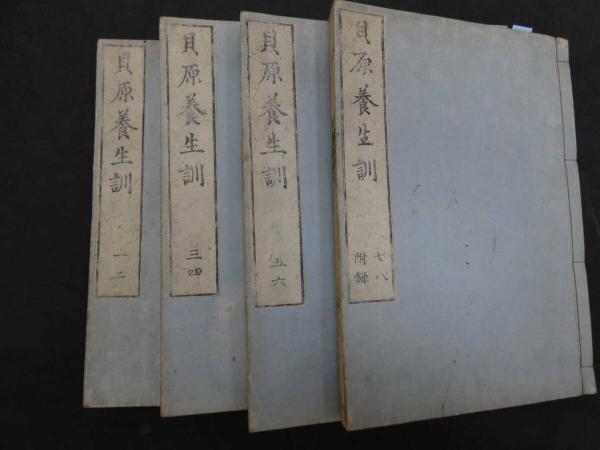 貝原養生訓
一二
貝原養生訓
三四
貝原養生訓
五六
貝原養生訓
七八
附録